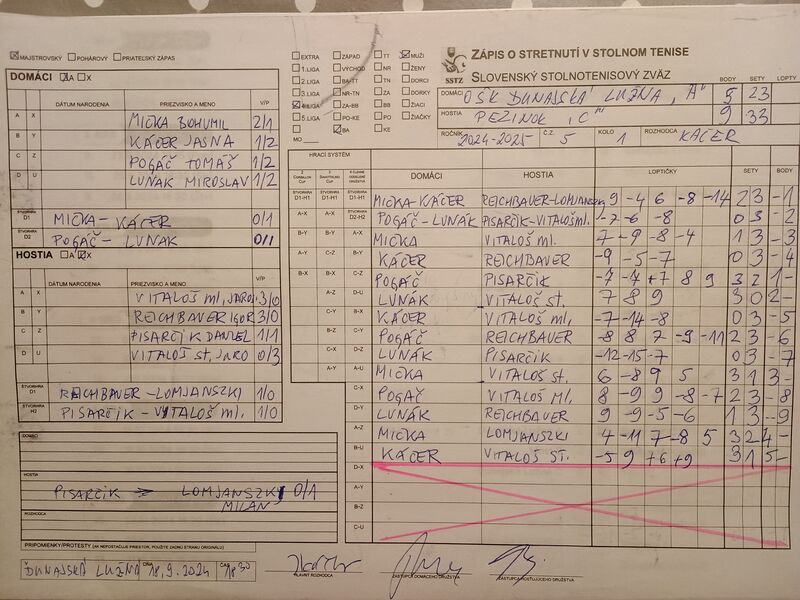 MAJSTROVSKÝ POHÁROVÝ PRIATEĽSKÝ ZÁPAS
DOMÁCI A X
DÁTUM NARODENIA PRIEZVISKO A MENO V/P
A X MIČKA BOHUMIL 2/1
B Y KÁČER JASNA 1/2
C Z POGÁČ TOMÁŠ 1/2
D U LUNÁK MIROSLAV 1/2
ŠTVORHRA D1 MIČKA - KÁČER 0/1
ŠTVORHRA D2 POGÁČ - LUNÁK 0/1
HOSTIA A X
DÁTUM NARODENIA PRIEZVISKO A MENO V/P
A X VITALOŠ ml, JARO 3/0
B Y REICHBAUER IGOR 3/0
C Z PISARČIK DANIEL 1/1
D U VITALOŠ st, JARO 0/3
ŠTVORHRA D1 REICHBAUER - LOMJANSZKI 1/0
ŠTVORHRA H2 PISARČIK - VITALOŠ ml. 1/0
DOMÁCI
HOSTIA
PISARČIK → LOMJANSZKI 0/1
MILAN
ROZHODCA
PRIPOMIENKY/PROTESTY (AK NEPOSTAČUJE PRIESTOR, POUŽITE ZADNÚ STRANU ORIGINÁLU)
V DUNAJSKÁ LUŽNÁ DŇA 18.9.2024 ČAS 18 30
HLAVNÝ ROZHODCA
ZÁSTUPCA DOMÁCEHO DRUŽSTVA
ZÁSTUPCA HOSŤUJÚCEHO DRUŽSTVA
EXTRA ZÁPAD TT MUŽI
1.LIGA VÝCHOD NR ŽENY
2.LIGA BA-TT TN DORCI
3.LIGA NR-TN ZA DORKY
4.LIGA ZA-BB BB ŽIACI
5.LIGA PO-KE PO ŽIAČKY
BA KE
MO
SSTZ
ZÁPIS O STRETNUTÍ V STOLNOM TENISE
SLOVENSKÝ STOLNOTENISOVÝ ZVÄZ
BODY SETY LOPTY
DOMÁCI OŠK DUNAJSKÁ LUŽNÁ "A" 5 23
HOSTIA PEZINOK "C" 9 33
ROČNÍK 2024-2025 Č.Z. 5 KOLO 1 ROZHODCA KÁČER
HRACÍ SYSTÉM
DOMÁCI HOSTIA LOPTIČKY SETY BODY
MIČKA-KÁČER REICHBAUER-LOMJANSZKI 9 -4 6 -8 -14 2 3 -1
POGÁČ-LUNÁK PISARČIK-VITALOŠ ml. -7 -6 -8 0 3 -2
MIČKA VITALOŠ ml. 7 -9 -8 -4 1 3 -3
KÁČER REICHBAUER -9 -5 -7 0 3 -4
POGÁČ PISARČIK -7 -7 +7 8 9 3 2 1-
LUNÁK VITALOŠ st. 7 8 9 3 0 2-
KÁČER VITALOŠ ml, -7 -14 -8 0 3 -5
POGÁČ REICHBAUER -8 8 7 -9 -11 2 3 -6
LUNÁK PISARČIK -12 -15 -7 0 3 -7
MIČKA VITALOŠ st. 6 -8 9 5 3 1 3-
POGÁČ VITALOŠ Ml, 8 -9 9 -8 -7 2 3 -8
LUNÁK REICHBAUER 9 -9 -5 -6 1 3 -9
MIČKA LOMJANSZKI 4 -11 7 -8 5 3 2 4-
KÁČER VITALOŠ ST. -5 9 +6 +9 3 1 5-
D-X
A-Y
B-Z
C-U